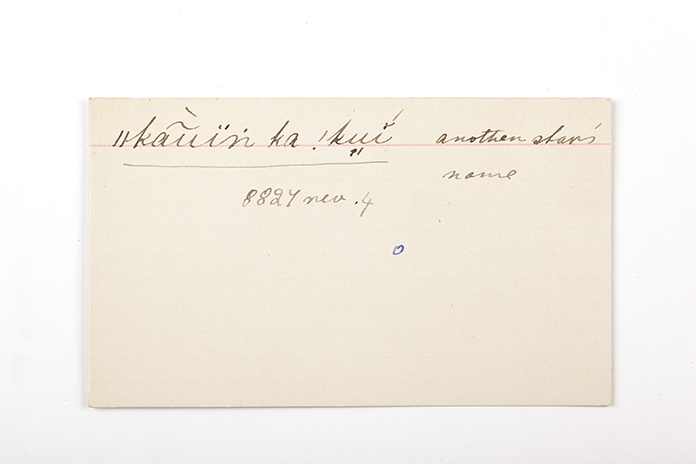 ǁkāuïn ka ǃkuí another star's
name
8827 rev. 4